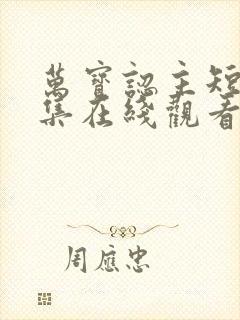 萬寶認主短
集在綫觀看
周應忠